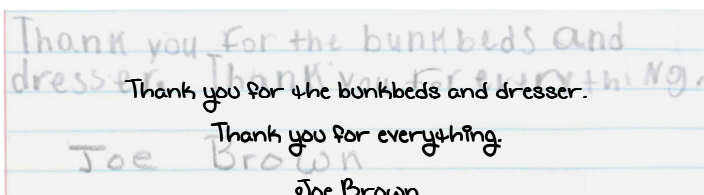 Thank you for the bunkbeds and
dresser. Thank you for everything.
Thank you for the bunkbeds and dresser.
Thank you for everything.
Joe Brown
Joe Brown